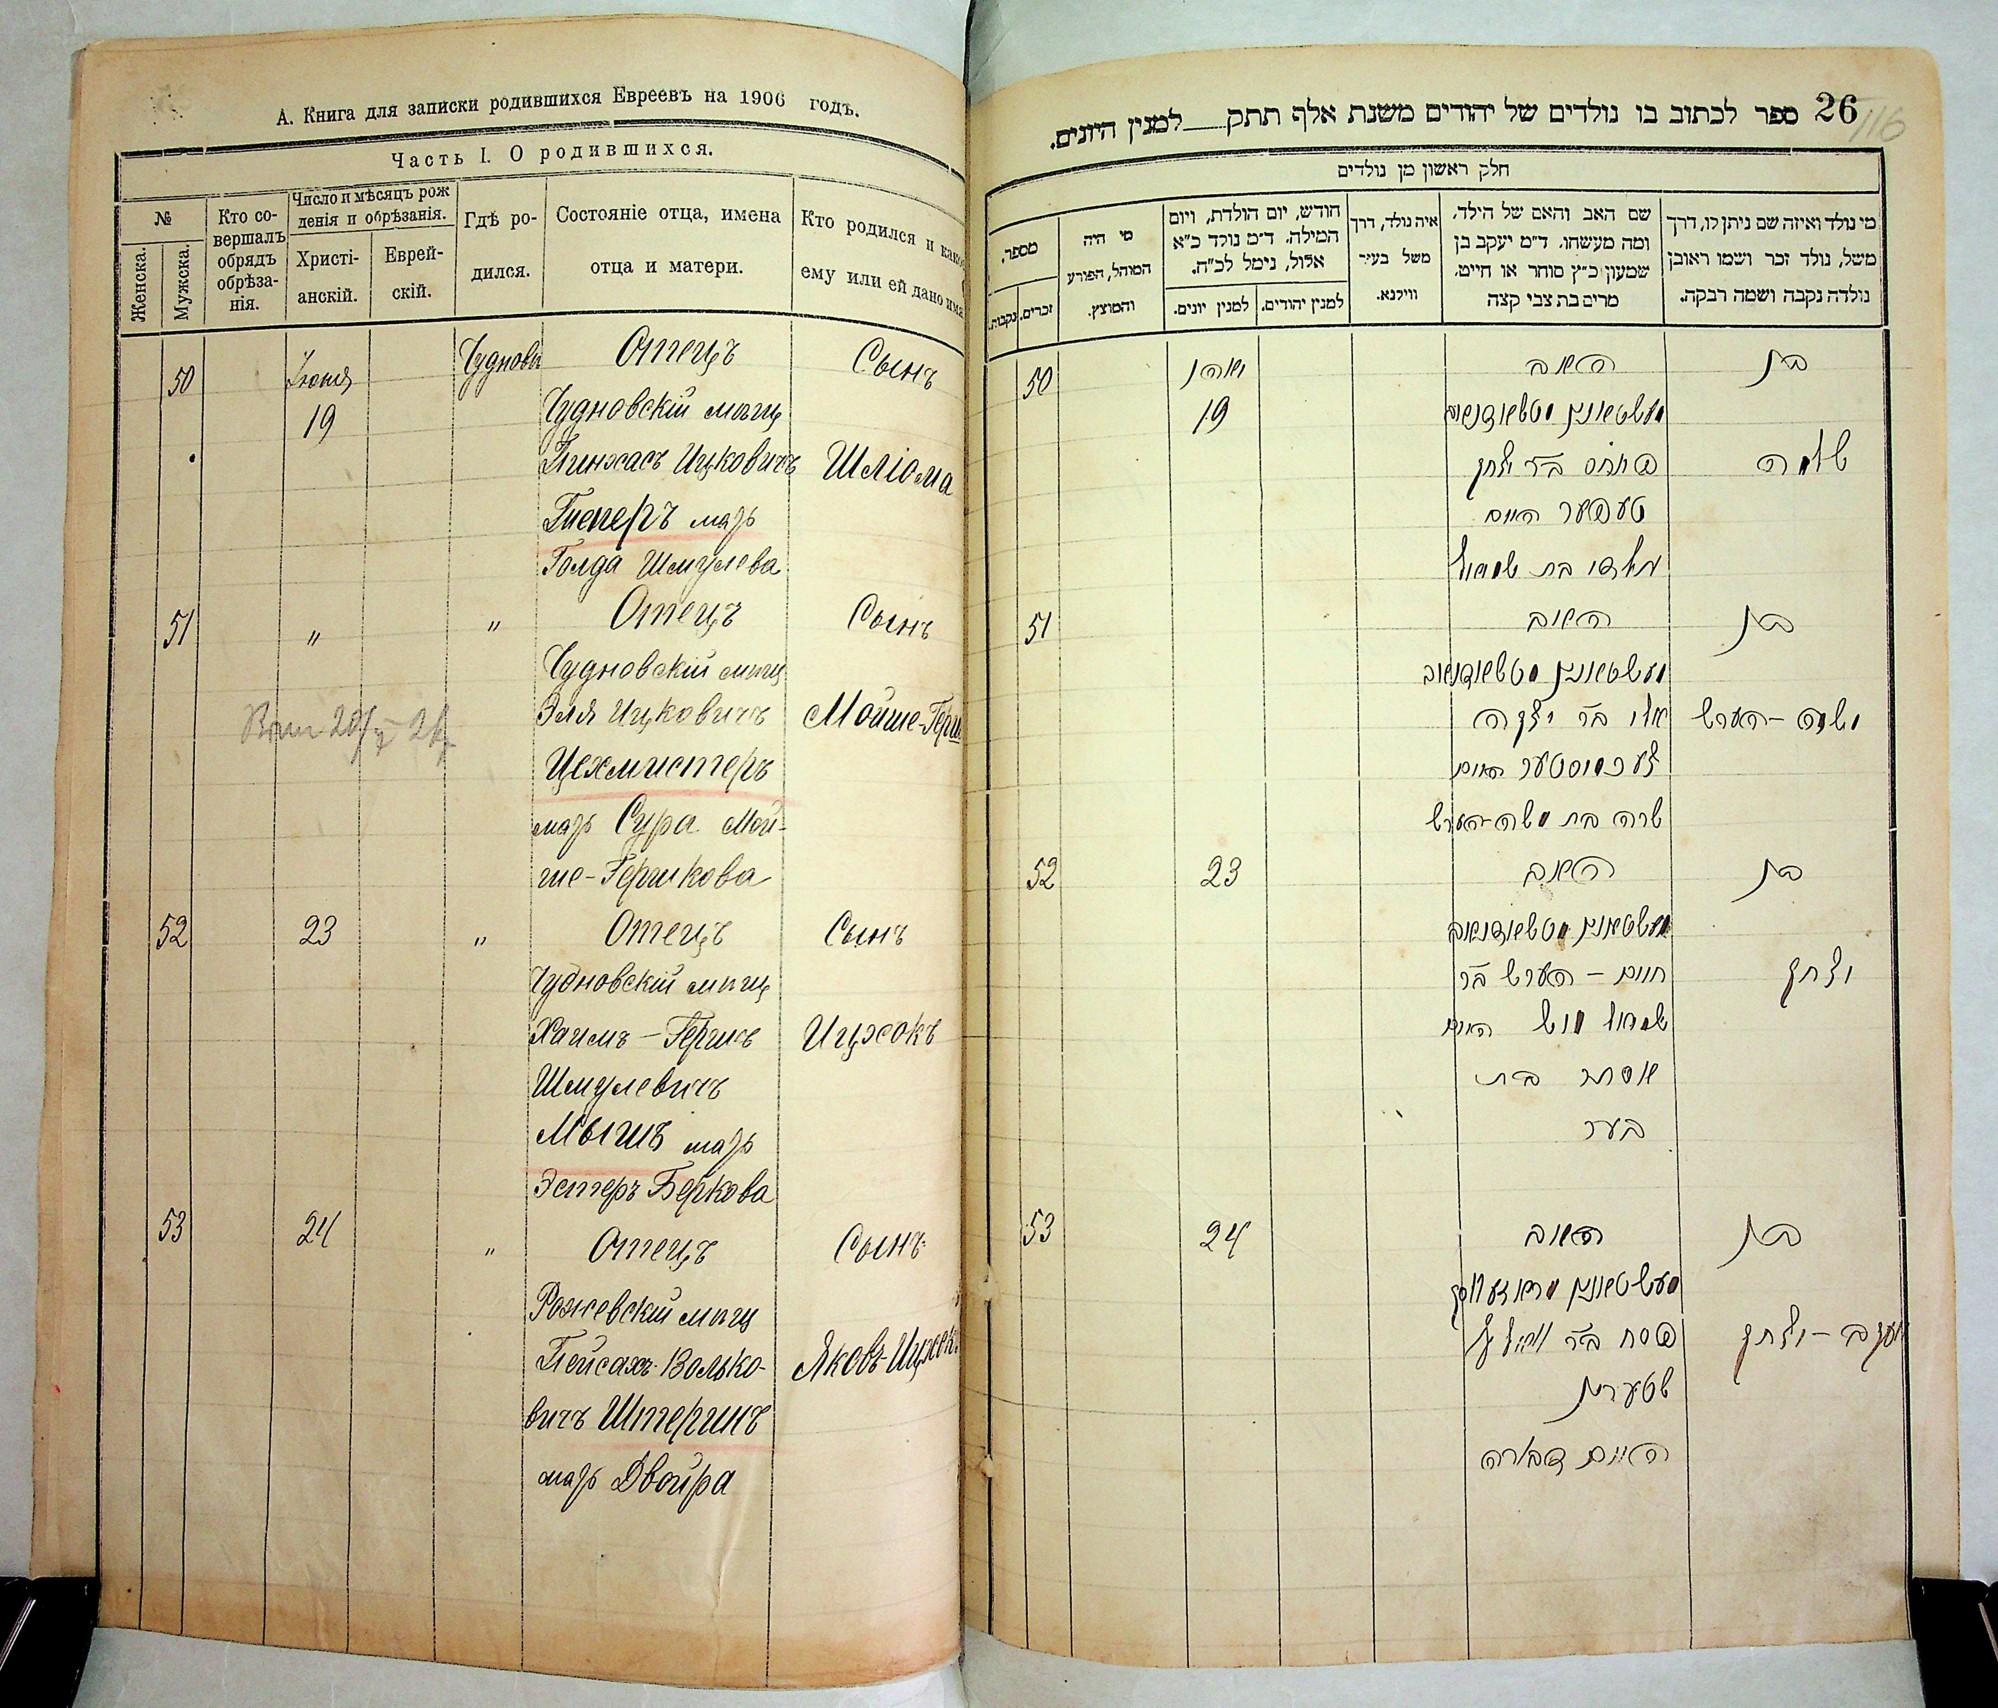 А. Книга для записки родившихся Евреевъ на 1906 годъ.
Часть I. О родившихся.
№
Женска.
Мужска.
Кто со-
вершалъ
обрядъ
обрѣза-
нія.
Число и мѣсяцъ рож
денія и обрѣзанія.
Христі-
анскій.
Еврей-
скій.
Гдѣ ро-
дился.
Состояніе отца, имена
отца и матери.
Кто родился и какое
ему или ей дано имя
50 Іюня Чудновъ Отецъ Сынъ
19 Чудновскій мѣщ
Пинхасъ Ицковичъ Шліома
Теперъ мать
Голда Шмулева
51 " " Отецъ Сынъ
Чудновскій мѣщ
Эля Ицковичъ Мойше-Герш
Цехмистеръ
мать Сура Мой-
ше-Гершкова
52 23 " Отецъ Сынъ
Чудновскій мѣщ
Хаимъ-Гершъ Ицхокъ
Шмулевичъ
Мышъ мать
Эстеръ Беркова
53 24 " Отецъ Сынъ
Рожевскій мѣщ
Пейсахъ Волько- Яковъ-Ицхокъ
вичъ Штеринъ
мать Двойра
26 ספר לכתוב בו נולדים של יהודים משנת אלף תתק למנין היונים.
116
חלק ראשון מן נולדים
מי נולד ואיזה שם ניתן לו, דרך
משל, נולד זכר ושמו ראובן
נולדה נקבה ושמה רבקה.
שם האב והאם של הילד,
ומה מעשהו. ד״מ יעקב בן
שמעון כ״ץ סוחר או חייט,
מרים בת צבי קצה
איה נולד, דרך
משל בעיר
ווילנא.
חודש, יום הולדת, ויום
המילה. ד״מ נולד כ״א
אלול, נימל לכ״ח.
למנין יהודים.
למנין יונים.
מי היה
המוהל, הפורע
והמוצץ.
מספר.
זכרים.
נקבות.
בן האב יוני 50
מעשטשאנין מטשודנאוו 19
שלמה פנחס ב״ר יצחק
טעפער האם
גאלדי בת שמואל
בן האב 51
מעשטשאנין מטשודנאוו
משה-הערש אלי ב״ר יצחק
צעכמיסטער האם
שרה בת משה-הערש
בן האב 23 52
מעשטשאנין מטשודנאוו
יצחק חיים - הערש ב״ר
שמואל מיש האם
אסתר בת
בער
בן האב 24 53
יעקב-יצחק פסח ב״ר וואלף
שטערין
האם דבורה